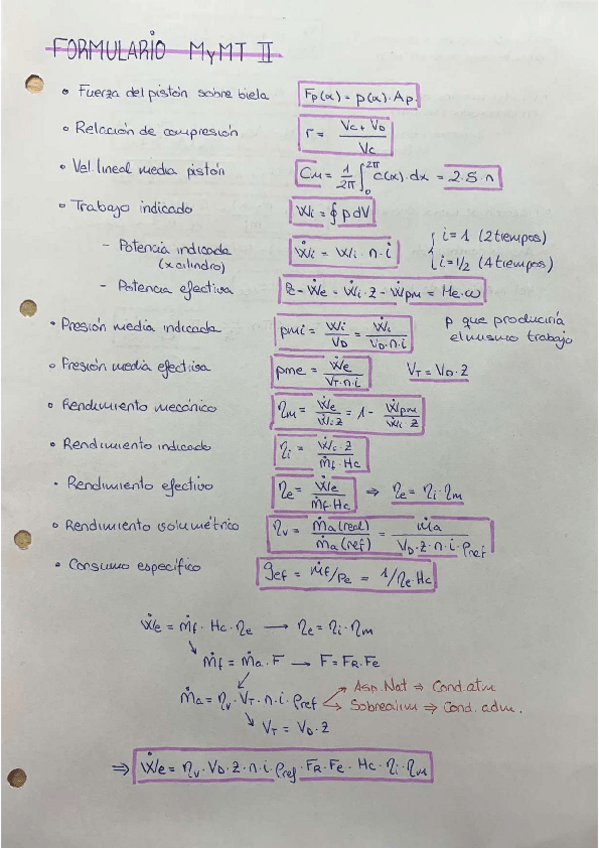 FORMULARIO MyMT II
• Fuerza del pistón sobre biela Fp(α) = p(α)·Ap
• Relación de compresión r = (Vc + VD)/Vc
• Vel. lineal media pistón CM = 1/2π ∫₀^2π c(α)·dx = 2·S·n
• Trabajo indicado Wi = ∮ p dV
- Potencia indicada (x cilindro) Ẇi = Wi · n · i { i = 1 (2 tiempos) i = 1/2 (4 tiempos)
- Potencia efectiva Ẇe = Ẇi · z - Ẇpm = He·ω
• Presión media indicada pmi = Wi/VD = Ẇi/(VD·n·i) p que produciría el mismo trabajo
• Presión media efectiva pme = Ẇe/(VT·n·i) VT = VD·z
• Rendimiento mecánico ηm = Ẇe/(Ẇi·z) = 1 - Ẇpm/(Ẇi·z)
• Rendimiento indicado ηi = Ẇi·z/(ṁf·Hc)
• Rendimiento efectivo ηe = Ẇe/(ṁf·Hc) ⇒ ηe = ηi·ηm
• Rendimiento volumétrico ηv = ṁa(real)/ṁa(ref) = ṁa/(VD·z·n·i·ρref)
• Consumo específico gef = ṁf/Pe = 1/ηe·Hc
Ẇe = ṁf · Hc · ηe → ηe = ηi·ηm
↘ ṁf = ṁa · F → F = FR·Fe
ṁa = ηv · VT · n · i · ρref → Asp. Nat ⇒ Cond. atm
→ Sobrealim ⇒ Cond. adm.
↘ VT = VD·z
⇒ Ẇe = ηv · VD · z · n · i · ρref · FR · Fe · Hc · ηi · ηm